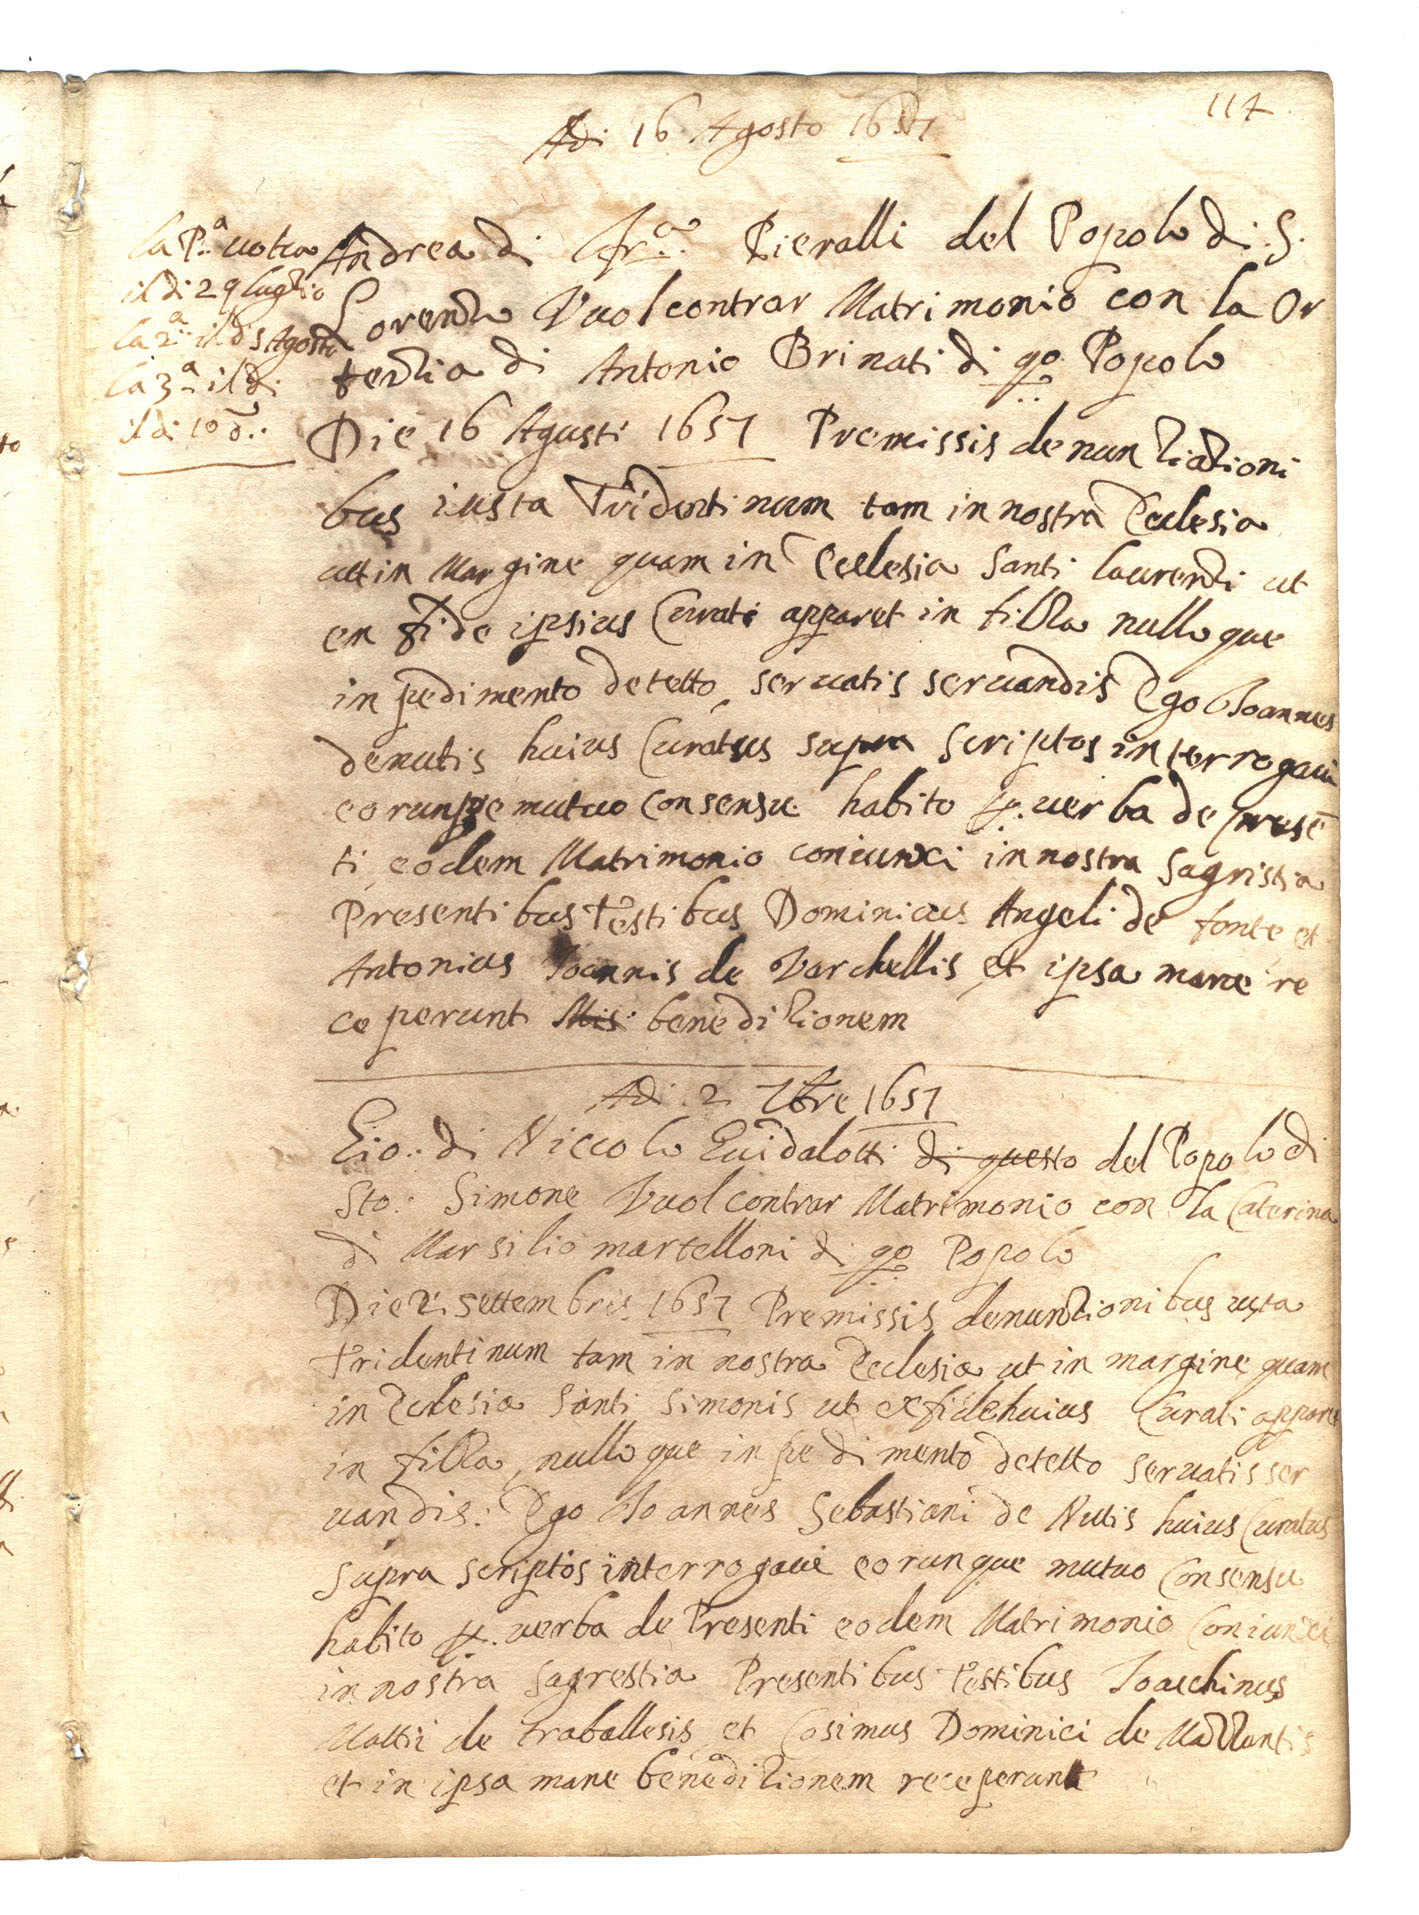 114
Adi 16 Agosto 1657
la P.a uolta
il di 29 luglio
la 2.a il di 5 Agosto
la 3.a il di
il di 10 d.o
Andrea di Fr.co Pieralli del Popolo di S.
Lorenzo Vuol contrar Matrimonio con la Or
tenzia di Antonio Brinati di qo Popolo
Die 16 Agusti 1657 Premissis denunziationi
bus iusta Tridentinum tam in nostra Eclesia
utt in Margine quam in Ecclesia Santi laurenzi ut
en fide ipsius Curati apparet in filza nulloque
inpedimento detetto seruatis seruandis Ego Joannes
denutis huius Curatus supra scriptos interrogaui
eorunque mutuo Consensu habito p. uerba de prese
ti eodem Matrimonio coniunxi in nostra Sagristia
Presentibus Testibus Dominicus Angeli de fonte et
Antonius Joannis de Varchellis et ipsa mane re
ceperunt Mis: benedizionem
Adi 2 7bre 1657
Gio: di Niccolo Guidalotti di questo del Popolo di
Sto: Simone Vuol contrar Matrimonio con la Caterina
di Marsilio martelloni di qo Popolo
Die 2 settembris 1657 Premissis denunzionibus iusta
Tridentinum tam in nostra Eclesia ut in margine quam
in Eclesia Santi Simonis ut ex fide huius Curati appare
in filza, nulloque inpedimento detetto seruatis ser
uandis: Ego Joannes Sebastiani de Nutis huius Curatus
Supra scriptos interrogaui eorunque mutuo Consensu
habito p. uerba de Presenti eodem Matrimonio Coniunxi
in nostra Sagrestia Presentibus Testibus Joacchinus
Mattii de traballesis et Cosimus Dominici de Mazzantis
et in ipsa mane benedizionem receperunt